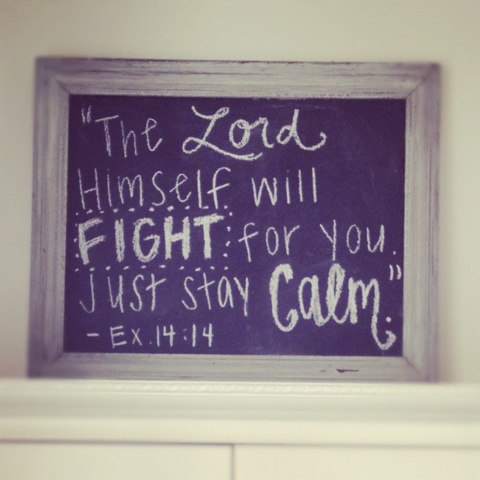 "The Lord
Himself will
FIGHT for you.
Just stay Calm."
- Ex. 14:14